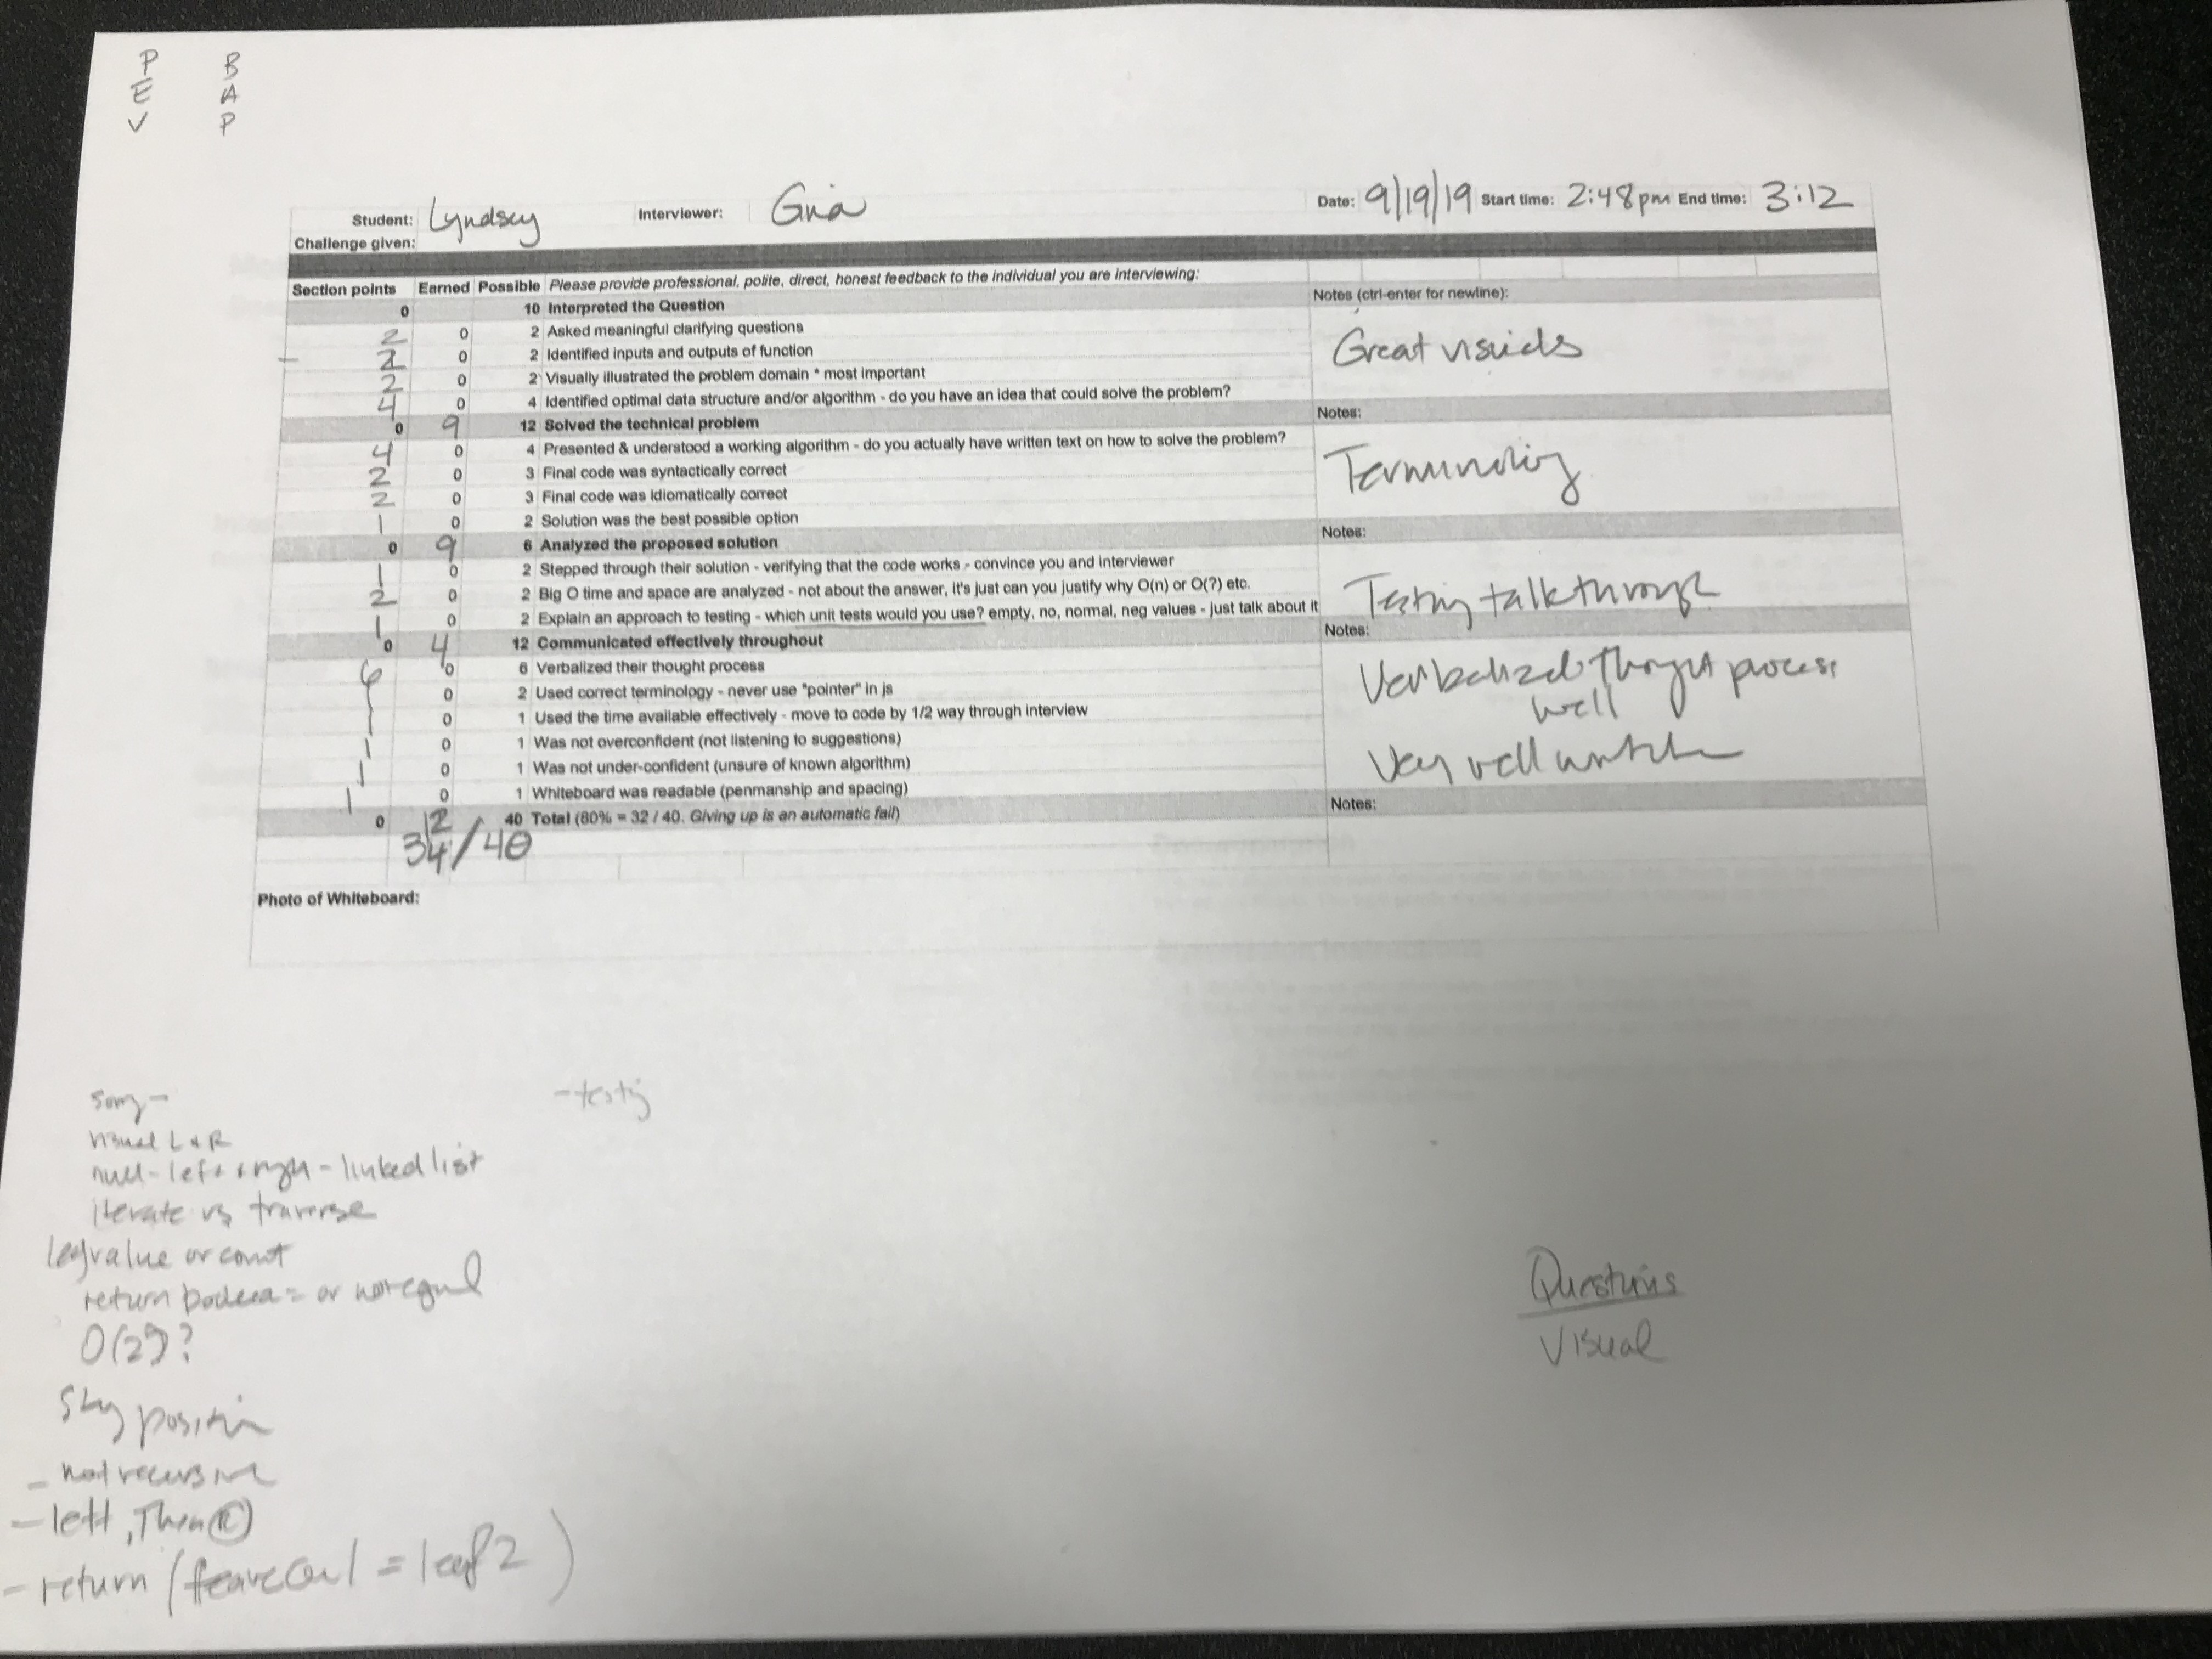 P B
E A
V P
Student: Lyndsey Interviewer: Gina Date: 9/19/19 Start time: 2:48pm End time: 3:12
Challenge given:
Section points Earned Possible Please provide professional, polite, direct, honest feedback to the individual you are interviewing:
Notes (ctrl-enter for newline):
0 10 Interpreted the Question
2 0 2 Asked meaningful clarifying questions
2 0 2 Identified inputs and outputs of function
Great visuals
2 0 2 Visually illustrated the problem domain * most important
4 0 4 Identified optimal data structure and/or algorithm - do you have an idea that could solve the problem?
0 9 12 Solved the technical problem Notes:
4 0 4 Presented & understood a working algorithm - do you actually have written text on how to solve the problem?
2 0 3 Final code was syntactically correct
Terminology
2 0 3 Final code was idiomatically correct
1 0 2 Solution was the best possible option
0 9 6 Analyzed the proposed solution Notes:
1 0 2 Stepped through their solution - verifying that the code works - convince you and interviewer
2 0 2 Big O time and space are analyzed - not about the answer, it's just can you justify why O(n) or O(?) etc.
Testing talk through
1 0 2 Explain an approach to testing - which unit tests would you use? empty, no, normal, neg values - just talk about it
0 4 12 Communicated effectively throughout Notes:
6 0 6 Verbalized their thought process
Verbalized thought process
well
1 0 2 Used correct terminology - never use "pointer" in js
1 0 1 Used the time available effectively - move to code by 1/2 way through interview
1 0 1 Was not overconfident (not listening to suggestions)
Very well written
1 0 1 Was not under-confident (unsure of known algorithm)
1 0 1 Whiteboard was readable (penmanship and spacing)
0 12 40 Total (80% = 32 / 40. Giving up is an automatic fail) Notes:
34/40
Photo of Whiteboard:
sorry -
- testing
visual L & R
null - left + right - linked list
iterate vs traverse
leaf value or count
return boolean = or not equal
Questions
Visual
stay position
- not recursive
- left, then R
- return ( = leaf 2 )